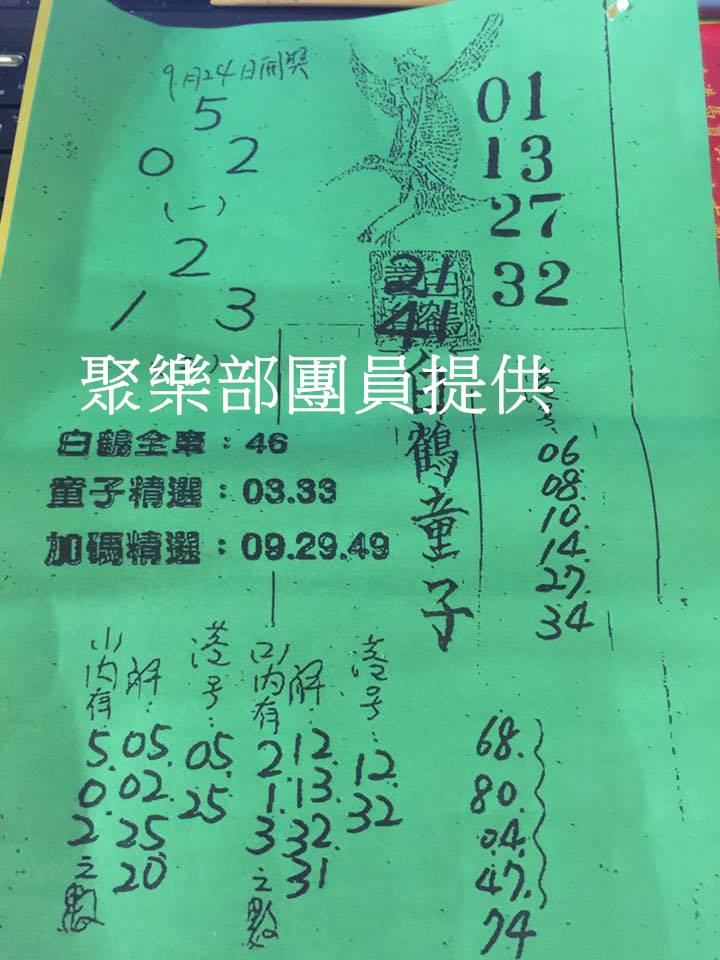 9月24日開獎
5
0 2
(一)
2
1 3
01
13
27
32
21
41
聚樂部團員提供
白鶴童子
白鶴全車：46
童子精選：03.33
加碼精選：09.29.49
06
08.
10.
14.
27.
34
(一)內有
5.
0.
2
之數
解：
05.
02.
25
20
港号：
05.
25
(二)內有
2.
1.
3
之數
解：
12.
13.
32.
31
港号：
12.
32
68.
80.
04.
47.
74